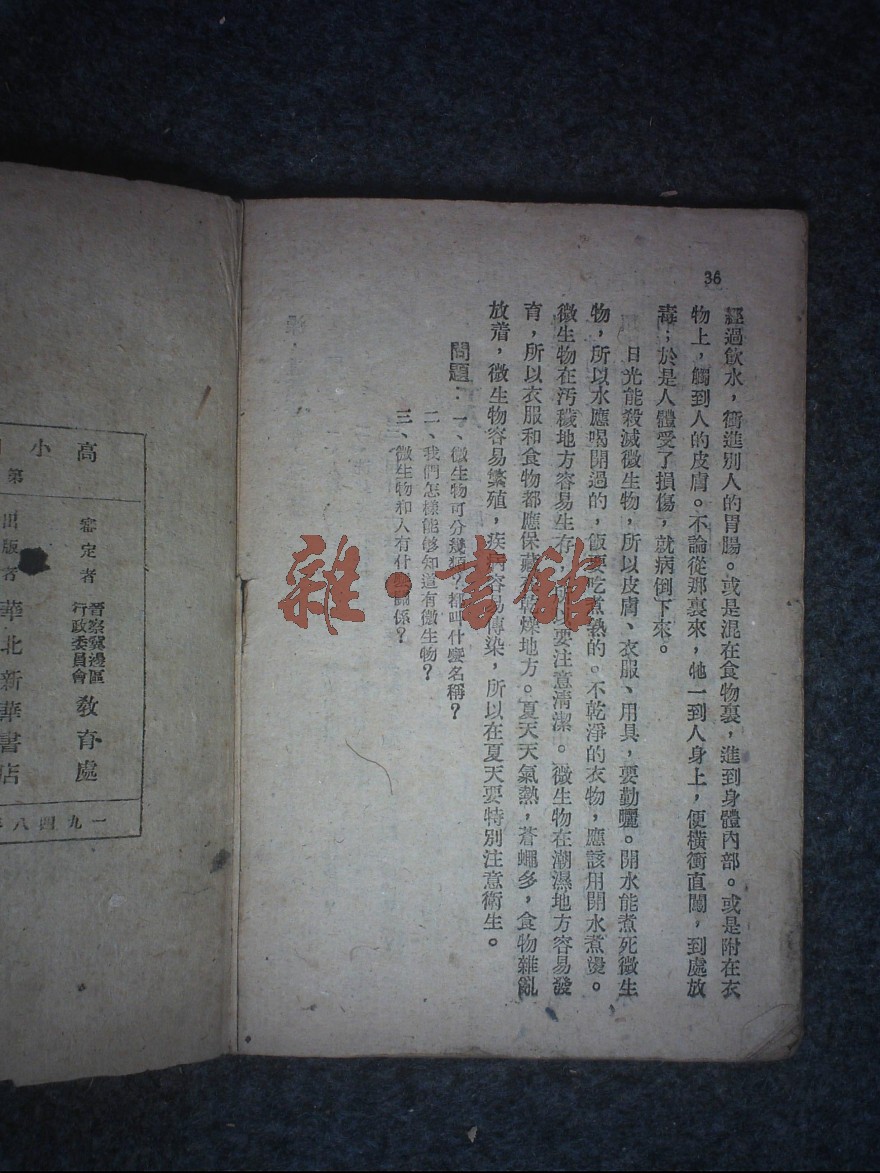 36
經過飲水，衝進別人的胃腸。或是混在食物裏，進到身體內部。或是附在衣
物上，觸到人的皮膚。不論從那裏來，牠一到人身上，便橫衝直闖，到處放
毒；於是人體受了損傷，就病倒下來。
日光能殺滅微生物，所以皮膚、衣服、用具，要勤曬。開水能煮死微生
物，所以水應喝開過的，飯要吃煮熟的。不乾淨的衣物，應該用開水煮燙。
微生物在汚穢地方容易生存，所以要注意清潔。微生物在潮濕地方容易發
育，所以衣服和食物都應保藏在乾燥地方。夏天天氣熱，蒼蠅多，食物雜亂
放着，微生物容易繁殖，疾病容易傳染，所以在夏天要特別注意衛生。
問題：一、微生物可分幾類？都叫什麼名稱？
二、我們怎樣能够知道有微生物？
三、微生物和人有什麼關係？
雜·書館
高小
第
審定者 晉察冀邊區行政委員會 教育處
出版者 華北新華書店
一九四八年